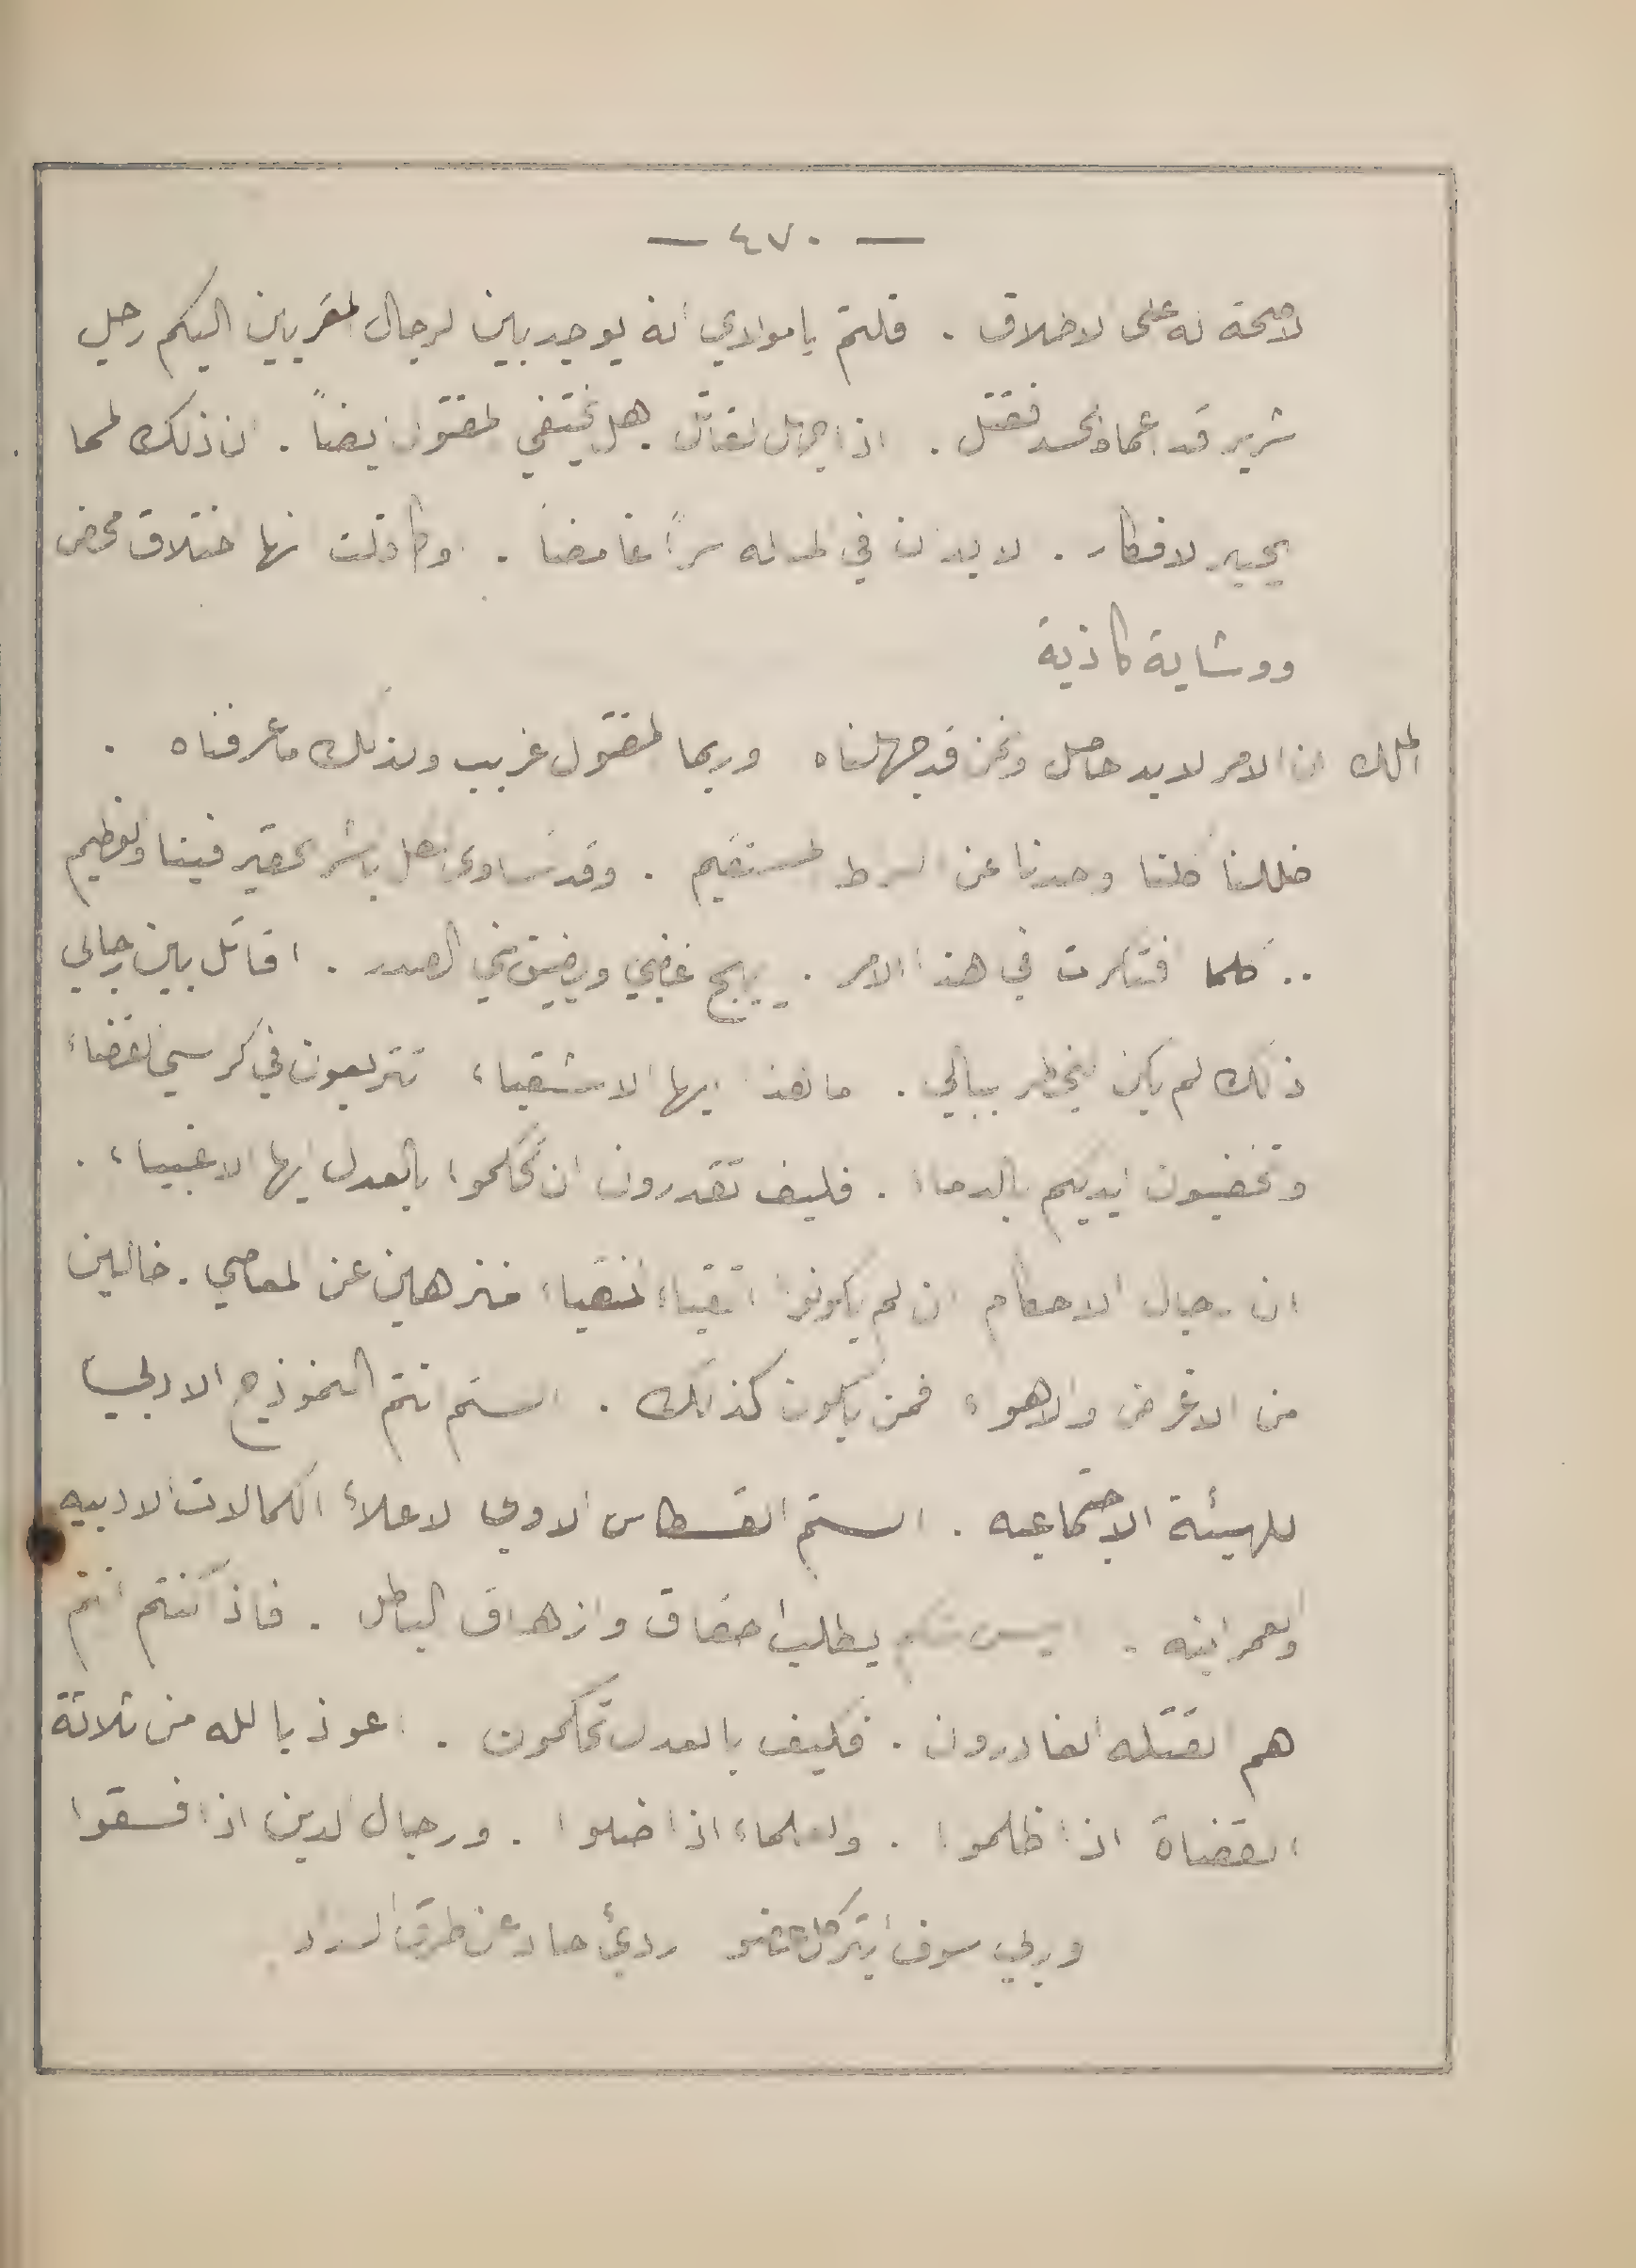 — ٤٧٠ —
لا صحة له على الاخلاق . قلتم يا مولاي انه يوجد بين الرجال المقربين اليكم رجل
شرير قد اعماه الحسد فقتل . اذا جهل القاتل هل يختفي المقتول ايضاً . ان ذلك لمما
يحير الافكار . لا بد ان في المسأله سراً غامضاً . وكما قلت انها اختلاق محض
ووشاية كاذبة
الملك ان الامر لا بد حاصل ونحن قد جهلناه وربما المقتول غريب ولذلك ما عرفناه .
ضللنا كلنا وحدنا عن السرط المستقيم . وقد تساوى بالشر الحقير فينا والعظيم
.. كلما افتكرت في هذا الامر . يهيج غيظي ويضيق مني الصدر . اقاتل بين رجالي
ذلك لم يكن ليخطر ببالي . ما هذا ايها الاشقياء تتربعون في كرسي القضاء
وتخضبون ايديكم بالدماء . فكيف تقدرون ان تحكموا بالعدل ايها الاغبياء .
ان رجال الاحكام ان لم يكونوا اتقياء انقياء منزهين عن المعاصي . خالين
من الاغراض والاهواء فمن يكون كذلك . الستم انتم النموذج الادبي
للهيئة الاجتماعيه . الستم القسطاس الاولي لاعلاء الكمالات الادبيه
والعمرانيه . اليس منكم يطلب احقاق وازهاق الباطل . فاذا كنتم انتم
هم القتله الغادرون . فكيف بالعدل تحاكمون . اعوذ بالله من ثلاثة
القضاة اذا ظلموا . والعلماء اذا ضلوا . ورجال الدين اذا فسقوا
وربي سوف اترك كل عضو رديء حاد عن طرق السداد